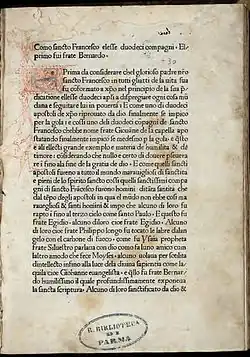 Como sancto Francesco elesse duodeci compagni. El
primo fui frate Bernardo.
Prima da considerare chel glorioso padre nro
sancto Francesco in tutti gli atti de la uita sua
fu coformato a xpo nel principio de la sua p
dicatione elesse duodeci apli a dispregiare ogni cosa mũ
dana e seguitare lui in pouerta: E come uno di duodeci
apostoli de xpo riprouato da dio finalmente se impico
per la gola: e cossi uno deli duodeci copagni de sancto
Francesco chebbe nome frate Giouãne de la capella apo
statando finalmente impico se medesimo p la gola: e qsto
e ali electi grande exempio e materia de humilita & de
timore: considerando che nullo e certo di douere pseuera
re fino ala fine de la gratia de dio. E come quelli sancti
apostoli fueno a tutto el mondo marauigliosi di sanctita
e pieni de lo spirito sancto cossi quelli sanctissimi copa
gni di sancto Frãcesco furono homini di tãta sanctita che
dal tẽpo degli apostoli in qua el modo non ebbe cosi ma
rauegliosi & sancti homini & impo che alcuno di loro fu
rapto i fino al terzo cielo come santo Paulo. E questo fu
frate Egidio. alcuno dloro cioe frate Egidio. Alcuno di
loro cioe frate Philippo longo fu tocato le labra dalan
gelo con el carbone di fuoco: come fu Ysaia propheta
frate Siluestro parlaua con dio come fa luno amico cum
laltro amodo che fece Moyses. alcuno uolaua per sotilita
dintellecto infino alla luce dela diuina sapientia come la
quila cioe Giohanne euangelista. e qsto fu frate Bernar
do humilissimo il quale profundissimamente exponeua
la sancta scriptura. Alcuno di loro sanctificato da dio &
R. BIBLIOTECA
DI
PARMA